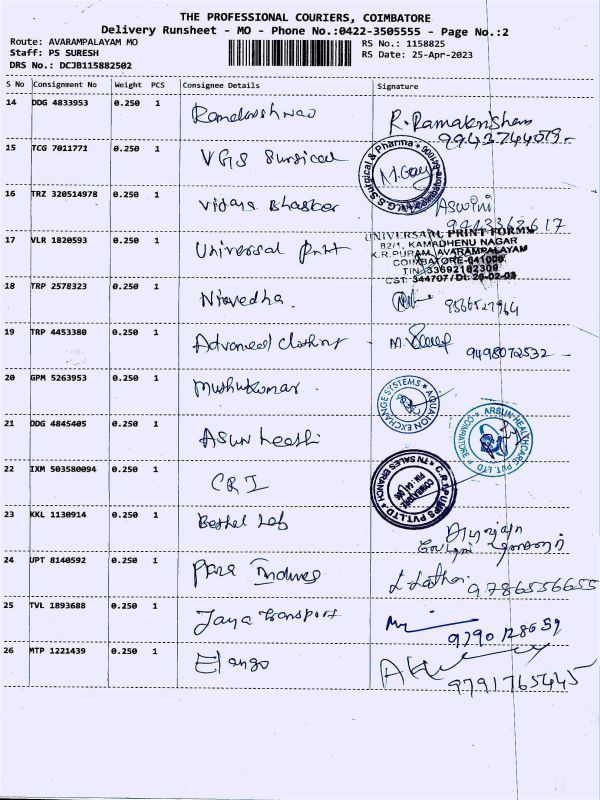 THE PROFESSIONAL COURIERS, COIMBATORE
Delivery Runsheet - MO - Phone No.:0422-3505555 - Page No.:2
Route: AVARAMPALAYAM MO RS No.: 1158825
Staff: PS SURESH RS Date: 25-Apr-2023
DRS No.: DCJB115882502
S No Consignment No Weight PCS Consignee Details Signature
14 DDG 4833953 0.250 1 R. Ramakrishnan
15 TCG 7011771 0.250 1 VGS Surgical
V.G.S Surgical & Pharma
16 TRZ 320514978 0.250 1 Vidya Bhaskar Aswini
17 VLR 1820593 0.250 1 Universal Print
UNIVERSAL PRINT FORMS
82/1, KAMADHENU NAGAR
K.R.PURAM, AVARAMPALAYAM
COIMBATORE-641006
TIN:33692182309
CST: 344707 / Dt: 26-02-03
18 TRP 2578323 0.250 1 Nivedha. 9566527964
19 TRP 4453380 0.250 1 Advanced Clothing M. 9498072532
20 GPM 5263953 0.250 1 Muthukumar
AQUAION EXCHANGE SYSTEMS
21 DDG 4845405 0.250 1
ARSUN HEALTHCARE PVT. LTD COIMBATORE
22 IXM 503580094 0.250 1 CRI
C.R.I PUMPS PVT. LTD
TN SALES BRANCH
23 KKL 1130914 0.250 1 Bethel Lab
24 UPT 8140592 0.250 1 9786556655
25 TVL 1893688 0.250 1 Jaya Transport
26 MTP 1221439 0.250 1 Elango 9791765445